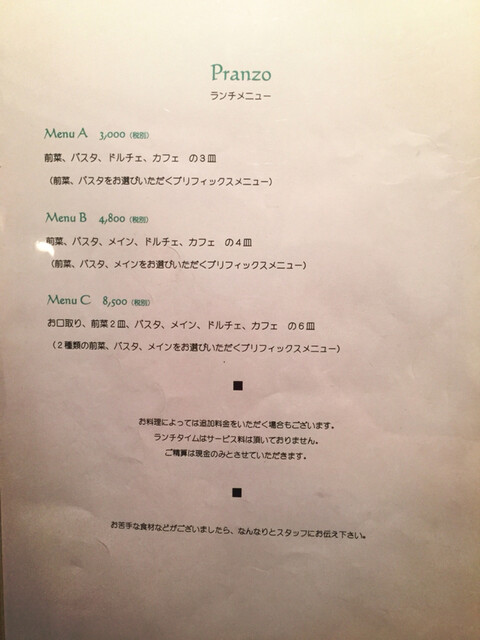 Pranzo
ランチメニュー
Menu A 3,000 (税別)
前菜、パスタ、ドルチェ、カフェ の3皿
(前菜、パスタをお選びいただくプリフィックスメニュー)
Menu B 4,800 (税別)
前菜、パスタ、メイン、ドルチェ、カフェ の4皿
(前菜、パスタ、メインをお選びいただくプリフィックスメニュー)
Menu C 8,500 (税別)
お口取り、前菜2皿、パスタ、メイン、ドルチェ、カフェ の6皿
(2種類の前菜、パスタ、メインをお選びいただくプリフィックスメニュー)
■
お料理によっては追加料金をいただく場合もございます。
ランチタイムはサービス料は頂いておりません。
ご精算は現金のみとさせていただきます。
■
お苦手な食材などがございましたら、なんなりとスタッフにお伝え下さい。